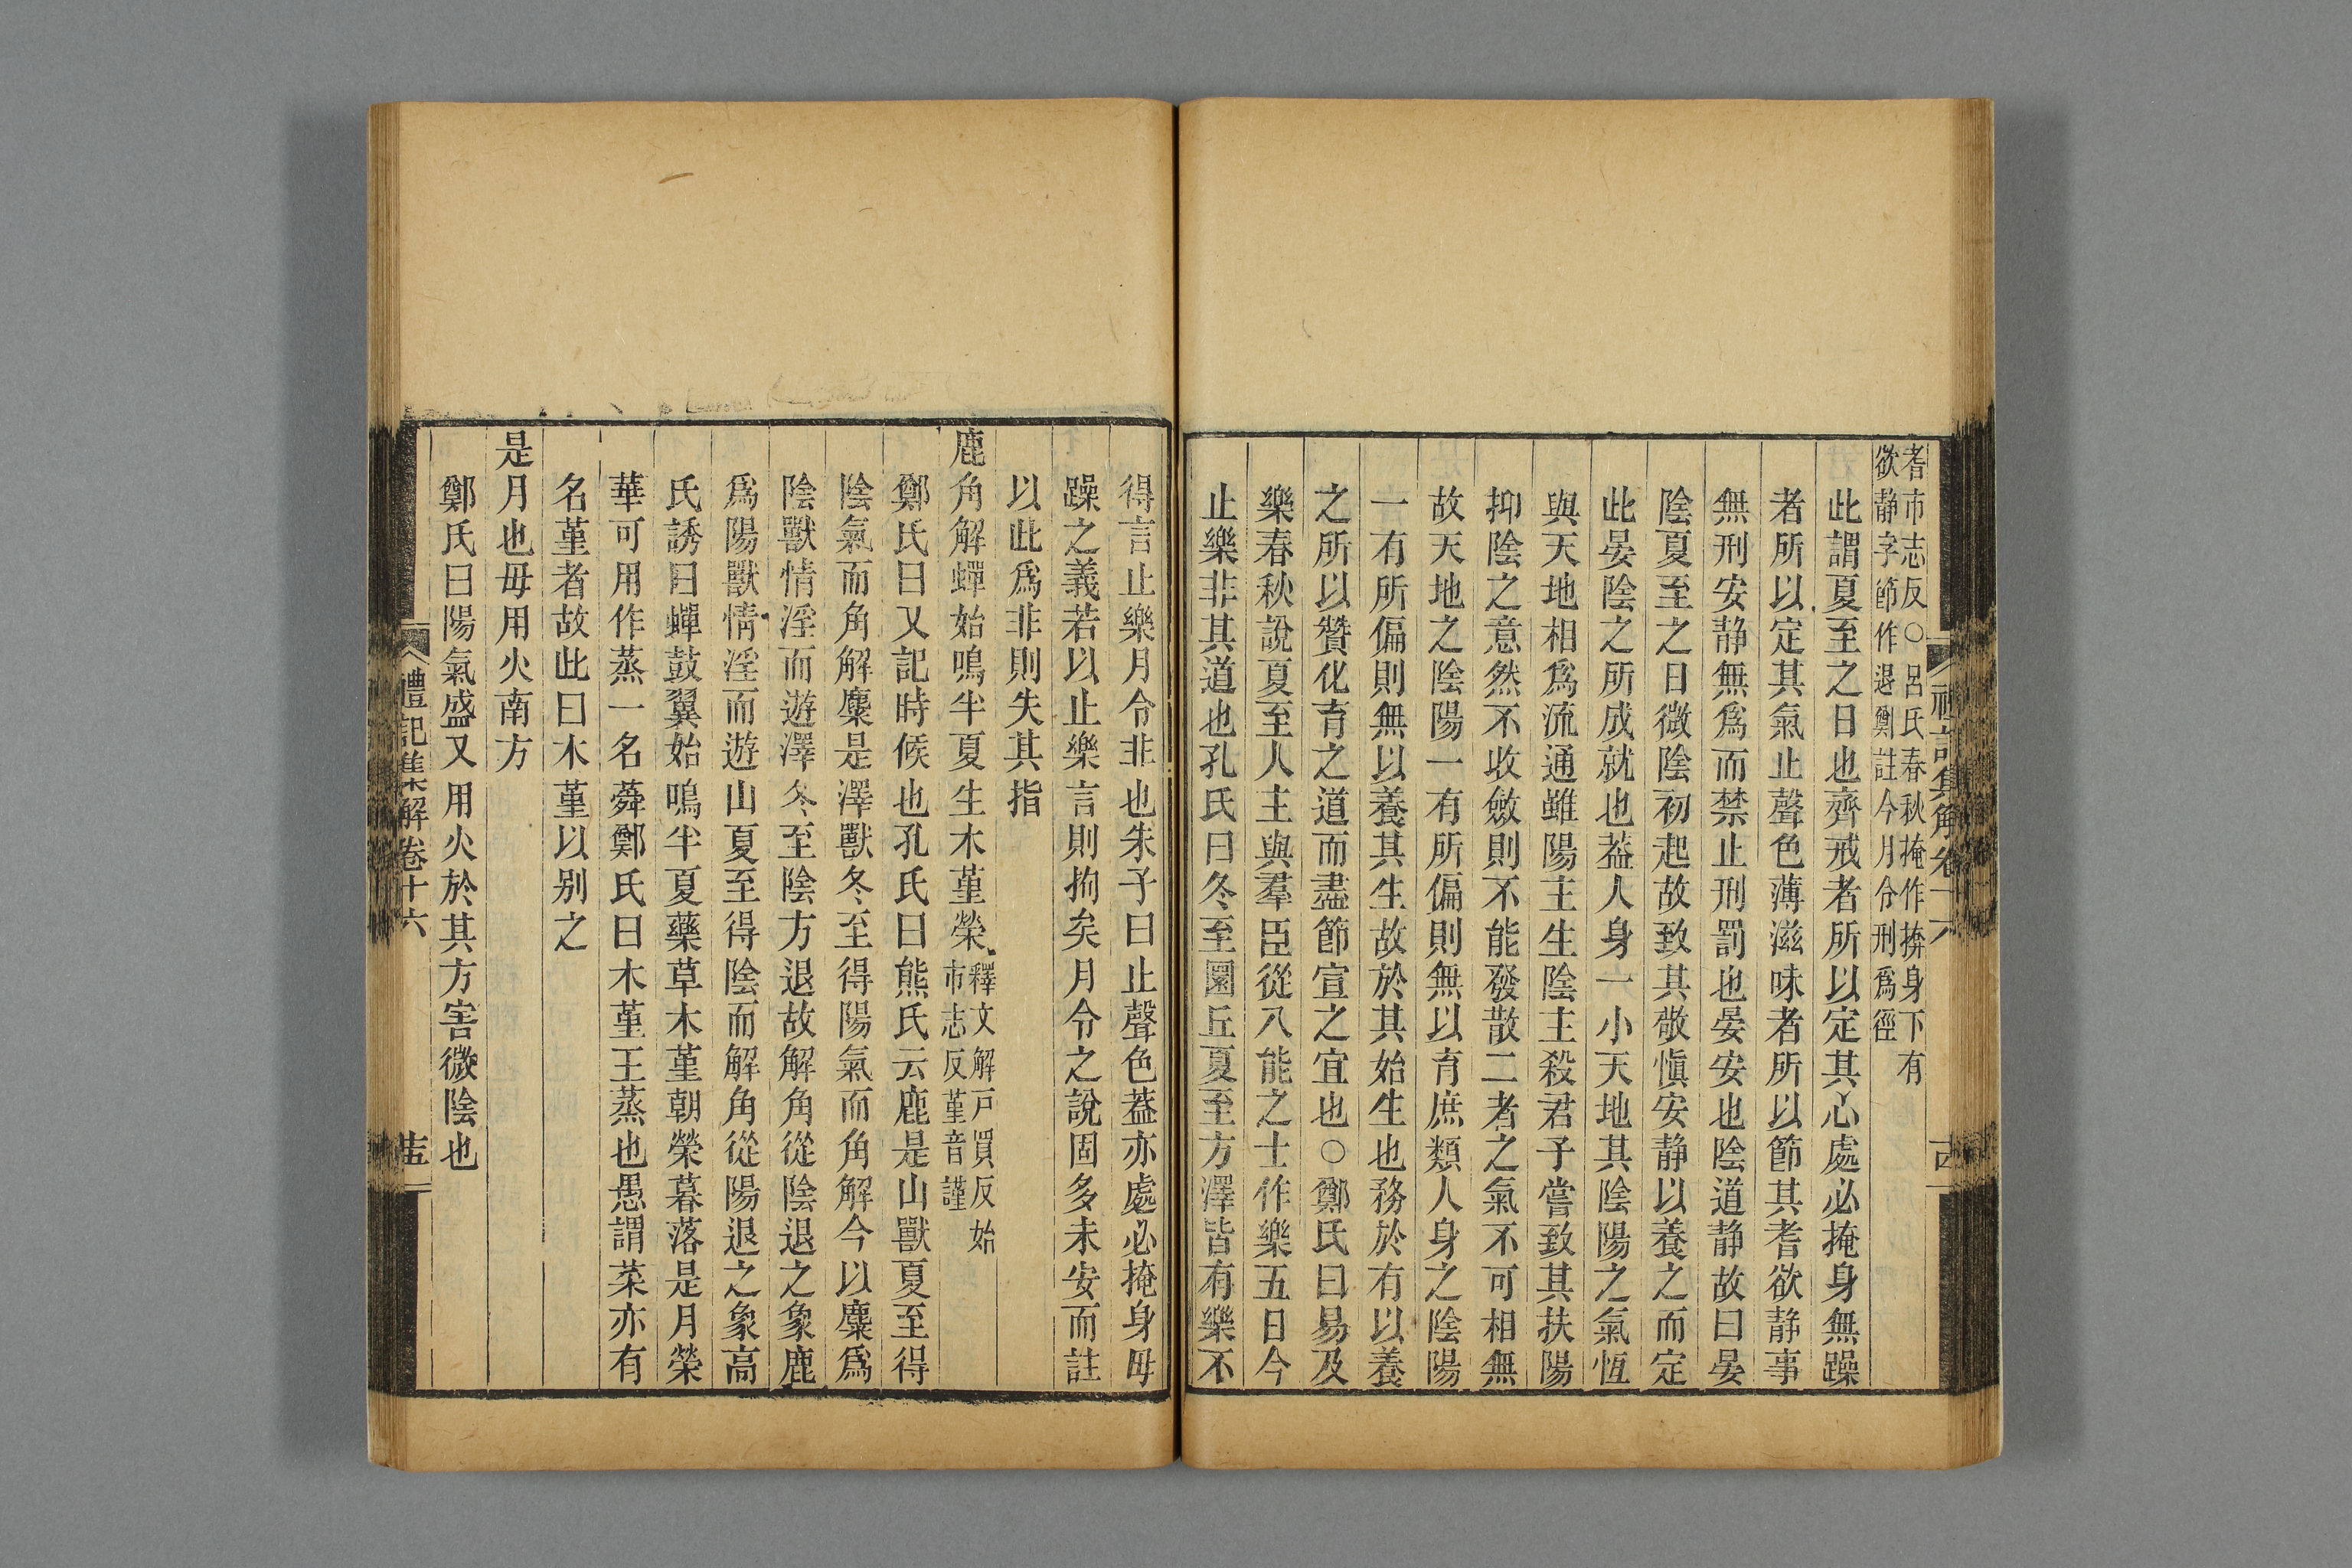 耆市志反○呂氏春秋掩作揜身下有
欲静字節作退鄭註今月令刑爲徑
此謂夏至之日也齊戒者所以定其心處必掩身無躁
者所以定其氣止聲色薄滋味者所以節其耆欲静事
無刑安静無爲而禁止刑罰也晏安也陰道静故曰晏
陰夏至之日微陰初起故致其敬愼安静以養之而定
此晏陰之所成就也葢人身一小天地其陰陽之氣恆
與天地相爲流通雖陽主生陰主殺君子嘗致其扶陽
抑陰之意然不收斂則不能發散二者之氣不可相無
故天地之陰陽一有所偏則無以育庶類人身之陰陽
一有所偏則無以養其生故於其始生也務於有以養
之所以贊化育之道而盡節宣之宜也○鄭氏曰易及
樂春秋說夏至人主與羣臣從八能之士作樂五日今
止樂非其道也孔氏曰冬至圜丘夏至方澤皆有樂不
得言止樂月令非也朱子曰止聲色葢亦處必掩身毋
躁之義若以止樂言則拘矣月令之說固多未安而註
以此爲非則失其指
鹿角解蟬始鳴半夏生木堇榮
釋文解戸買反始
市志反堇音謹
鄭氏曰又記時候也孔氏曰熊氏云鹿是山獸夏至得
陰氣而角解麋是澤獸冬至得陽氣而角解今以麋爲
陰獸情淫而遊澤冬至陰方退故解角從陰退之象鹿
爲陽獸情淫而遊山夏至得陰而解角從陽退之象高
氏誘曰蟬鼓翼始鳴半夏藥草木堇朝榮暮落是月榮
華可用作蒸一名蕣鄭氏曰木堇王蒸也愚謂菜亦有
名堇者故此曰木堇以别之
是月也毋用火南方
鄭氏曰陽氣盛又用火於其方害微陰也
禮記集解卷十六